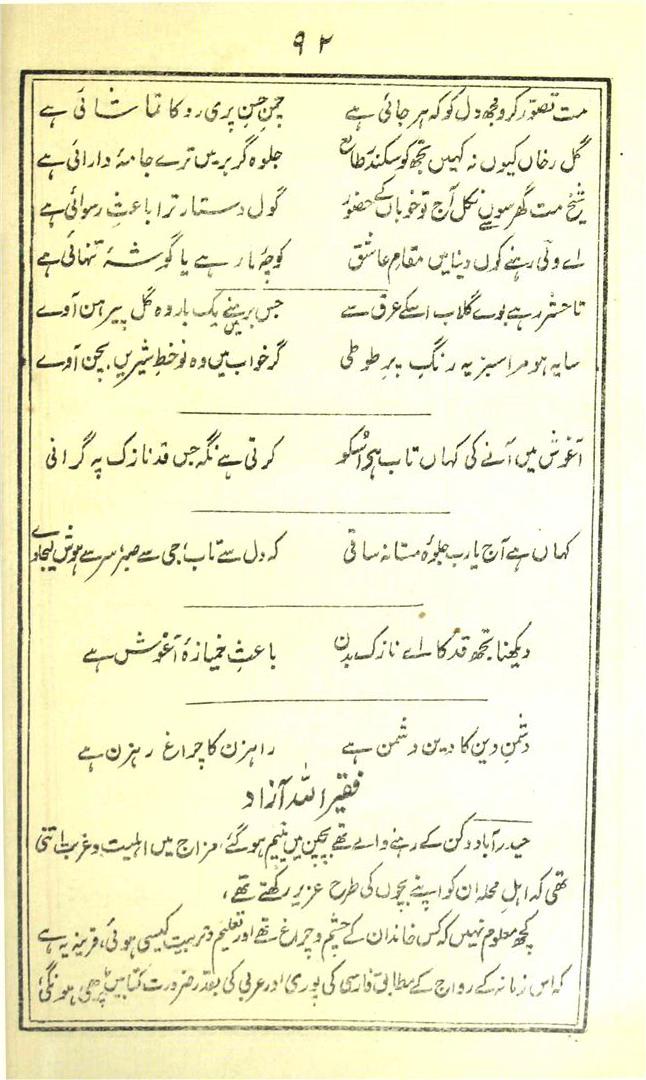 ۹۲
مت تصور کرو مجھ دل کو کہ ہر جائی ہے چمن حسن پری رو کا تماشائی ہے
گل رخاں کیوں نہ کہیں تجھ کو سکندر طالع جلوہ گر بر میں ترے جامۂ دارائی ہے
شیخ مت گھر سوں نکل آج تو خوباں کے حضور گول دستار ترا باعثِ رسوائی ہے
اے ولی رہنے کوں دنیا میں مقامِ عاشق کوچۂ یار ہے یا گوشۂ تنہائی ہے
تا حشر رہے بوے گلاب اسکے عرق سے جس بر منیے یک بار وہ گل پیرہن آوے
سایہ ہو مرا سبز بہ رنگِ پر طوطی گر خواب میں وہ نو خط شیریں بچن آوے
آغوش میں آنے کی کہاں تاب ہی اُسکو کرتی ہے نگہ جس قد نازک پہ گرانی
کہاں ہے آج یارب جلوۂ مستانہ ساقی کہ دل سے تاب، جی سے صبر، سر سے ہوش لیجاوے
دیکھنا تجھ قد کا اے نازک بدن باعثِ خمیازۂ آغوش ہے
دشمنِ دین کا دین دشمن ہے راہزن کا چراغ رہزن ہے
فقیر اللہ آزاد
حیدرآباد دکن کے رہنے والے تھے بچپن میں یتیم ہو گئے، مزاج میں اہلیت و غربت اتنی
تھی کہ اہلِ محلہ ان کو اپنے بچوں کی طرح عزیز رکھتے تھے،
کچھ معلوم نہیں کہ کس خاندان کے چشم و چراغ تھے اور تعلیم و تربیت کیسی ہوئی، قرینہ یہ ہے
کہ اس زمانہ کے رواج کے مطابق فارسی کی پوری اور عربی کی بقدر ضرورت کتابیں پڑھی ہونگی،